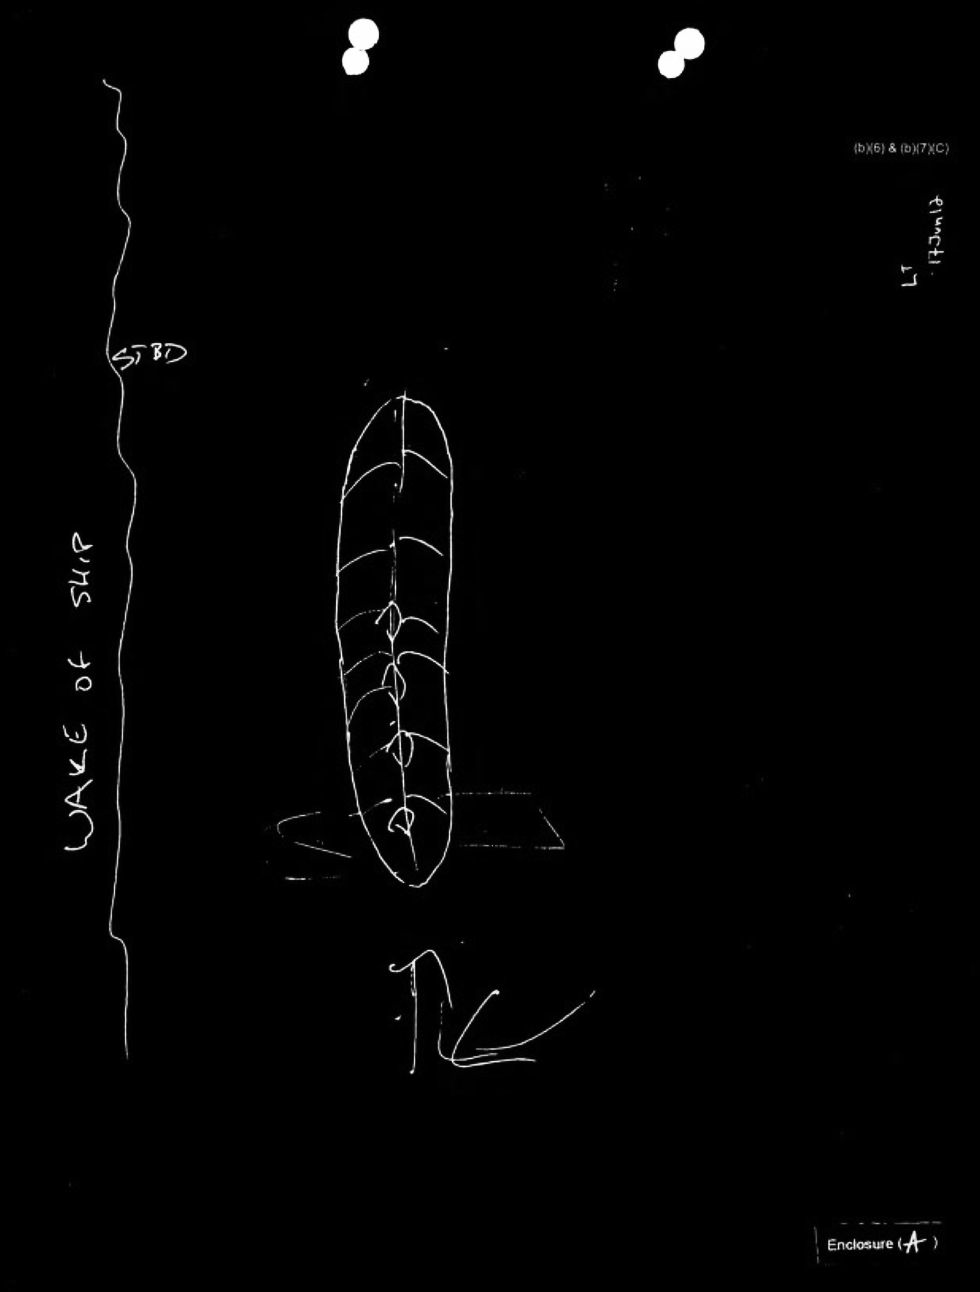 (b)(6) & (b)(7)(C)
LT
17 Jun 17
STBD
WAKE OF SHIP
Enclosure (A)